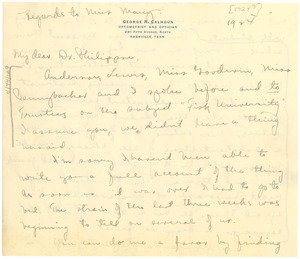 regards to Miss Macy
[1924?]
1924
GEORGE H. CALHOUN
OPTOMETRIST AND OPTICIAN
NASHVILLE, TENN.
My dear Dr. Phillips:
Anderson, Lewis, Miss Goodwin, Miss
and I spoke before and to
Trustees on the subject "Fisk University"
I assure you, we didn't leave a thing
unsaid.
I'm sorry I haven't been able to
write you a full account of the thing
as soon as it was over. I had to go to
bed. The strain of this last three weeks was
beginning to tell on several of us.
You can do me a favor by finding